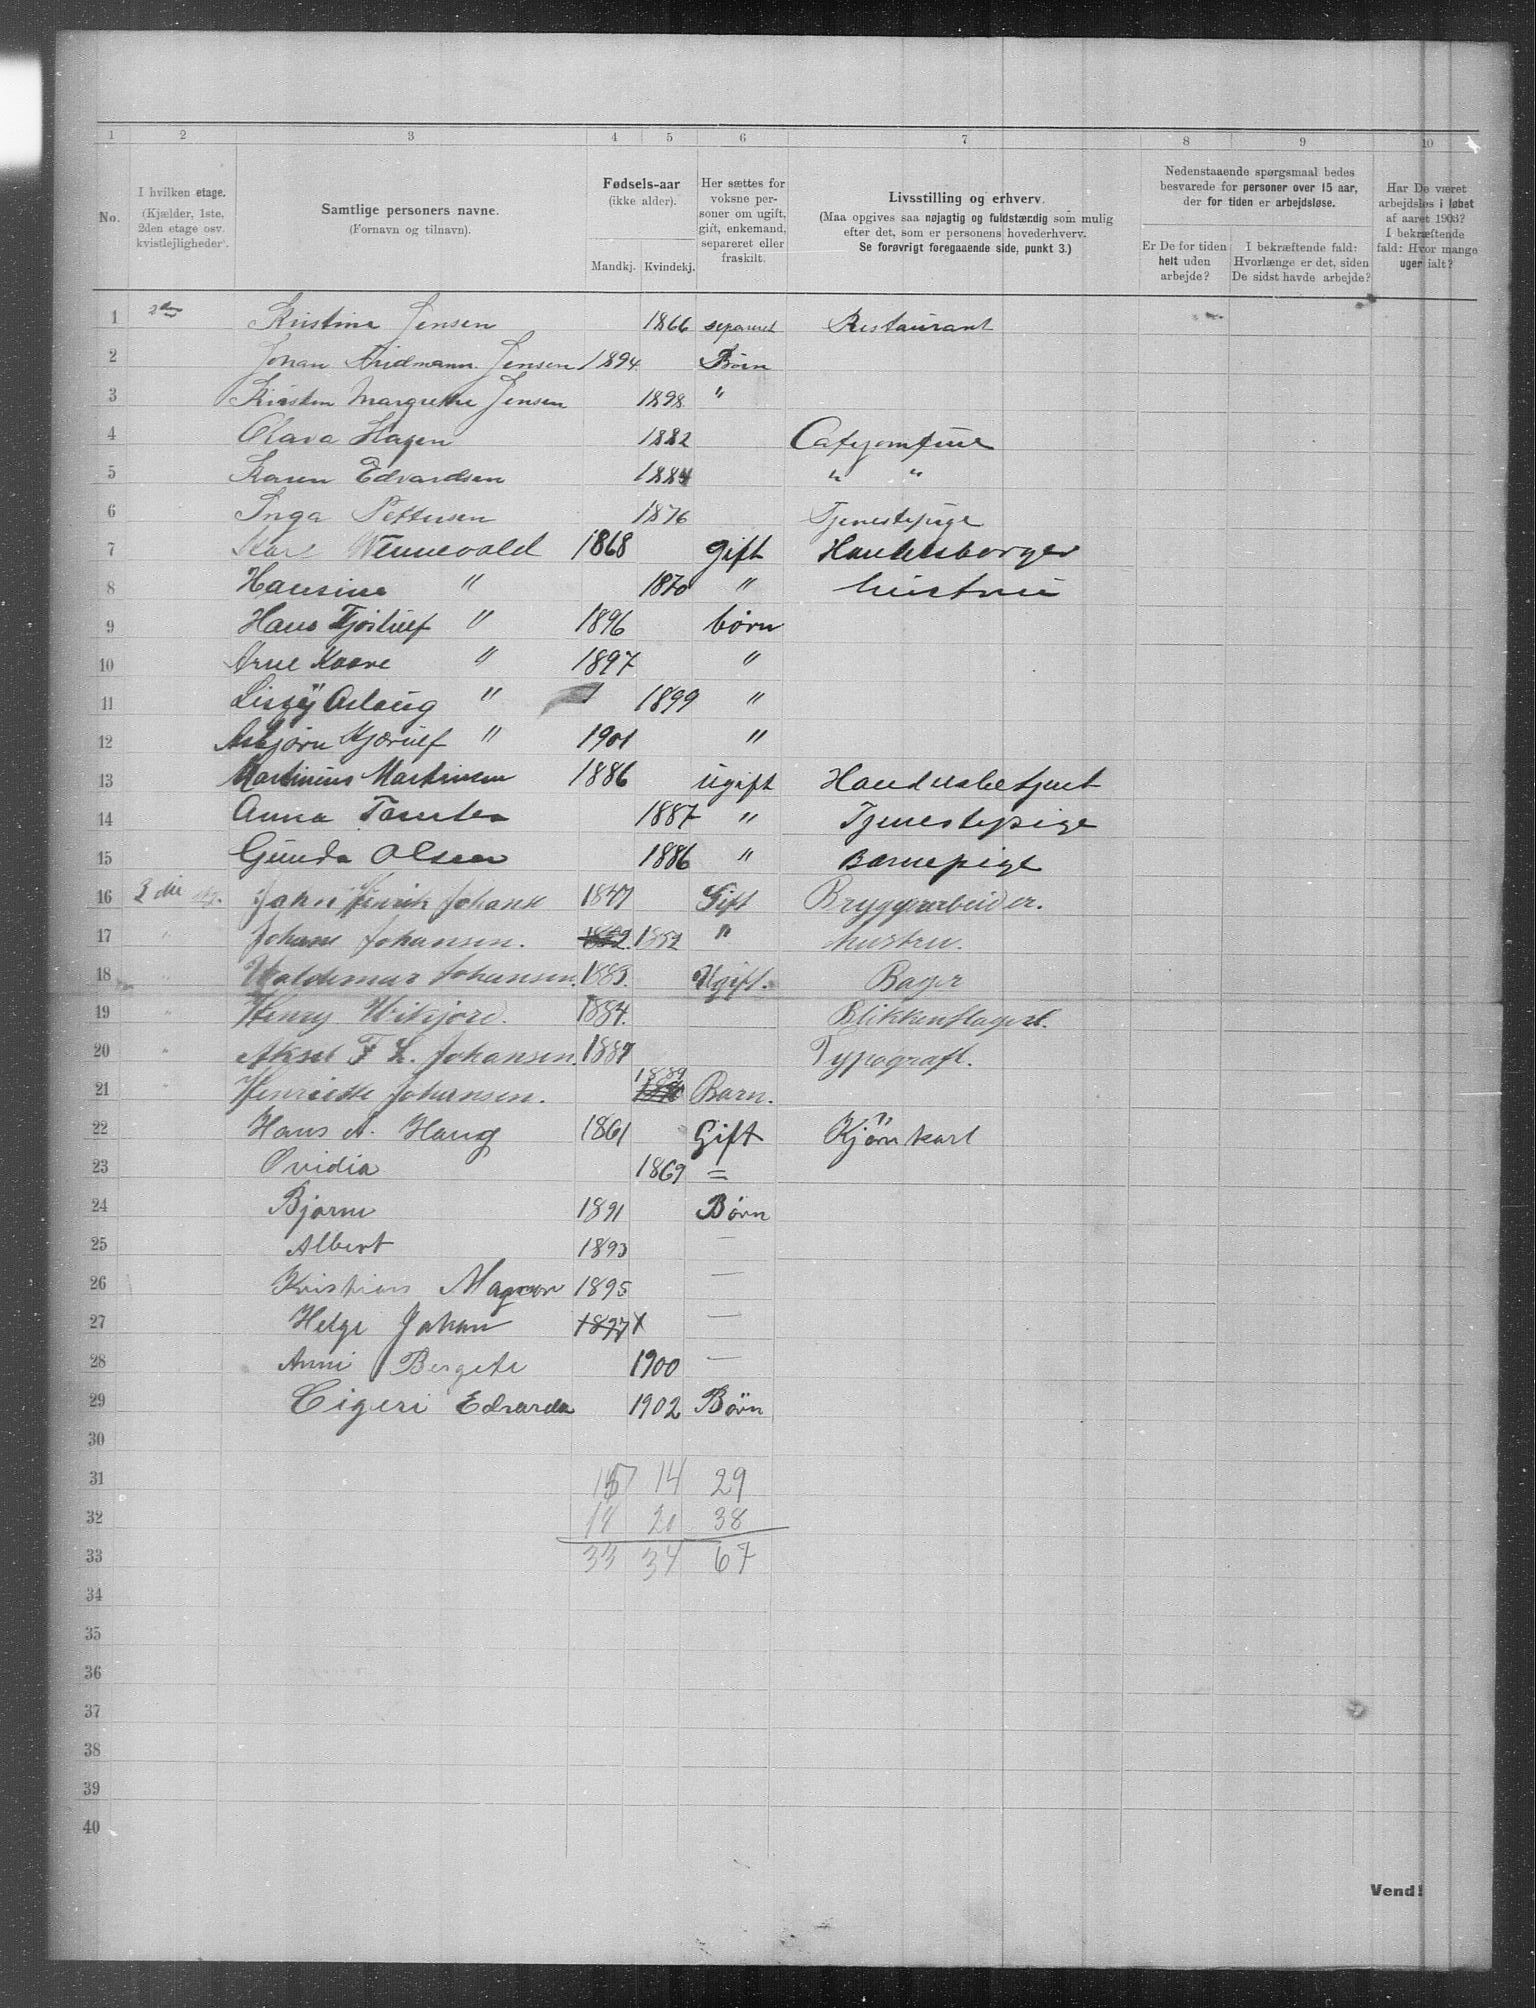 1 2 3 4 5 6 7 8 9 10
No.
I hvilken etage. (Kjælder, 1ste, 2den etage osv. kvistlejligheder).
Samtlige personers navne. (Fornavn og tilnavn).
Fødsels-aar (ikke alder). Mandkj. Kvindekj.
Her sættes for voksne personer om ugift, gift, enkemand, separeret eller fraskilt.
Livsstilling og erhverv. (Maa opgives saa nøjagtig og fuldstændig som mulig efter det, som er personens hovederhverv. Se forøvrigt foregaaende side, punkt 3.)
Nedenstaaende spørgsmaal bedes besvarede for personer over 15 aar, der for tiden er arbejdsløse.
Er De for tiden helt uden arbejde?
I bekræftende fald: Hvorlænge er det, siden De sidst havde arbejde?
Har De været arbejdsløs i løbet af aaret 1903? I bekræftende fald: Hvor mange uger ialt?
1 2den Kristine Jensen 1866 separeret Restaurant
2 Johan Jensen 1894 Børn
3 Kirsten Margrethe Jensen 1898 "
4 Olava Hagen 1882 Cafejomfrue
5 Karen Edvardsen 1884 " "
6 Inga Pettersen 1876 Tjenestepige
7 Karl Wennevold 1868 gift Handelsborger
8 Hansine " 1870 " hustrue
9 Hans " 1896 børn
10 Arne Kaare " 1897 "
11 Aslaug " 1899 "
12 Asbjørn Kjærulf " 1901 "
13 Martinius Martinsen 1886 ugift Handelsbetjent
14 Anna 1887 " Tjenestepige
15 Gunda Olsen 1886 " Barnepige
16 3die Henrik 1847 Gift Bryggerarbeider.
17 Johansen. 1852 1852 " hustru.
18 Waldemar Johansen. 1883. Ugift. Bager
19 Henry 1884. Blikkenslager
20 Aksel F. L. Johansen. 1887 Typograf.
21 Henriette Johansen. 1889 Barn.
22 Hans A. Haug 1861 Gift Kjørekarl
23 Ovidia 1869 =
24 Bjarne 1891 Børn
25 Albert 1893 —
26 Kristian Magnar 1895 —
27 Helge Johan 1897 x —
28 Anni Bergete 1900 —
29 Edvarda 1902 Børn
30
31 15 14 29
32 18 20 38
33 33 34 67
34
35
36
37
38
39
40
Vend!